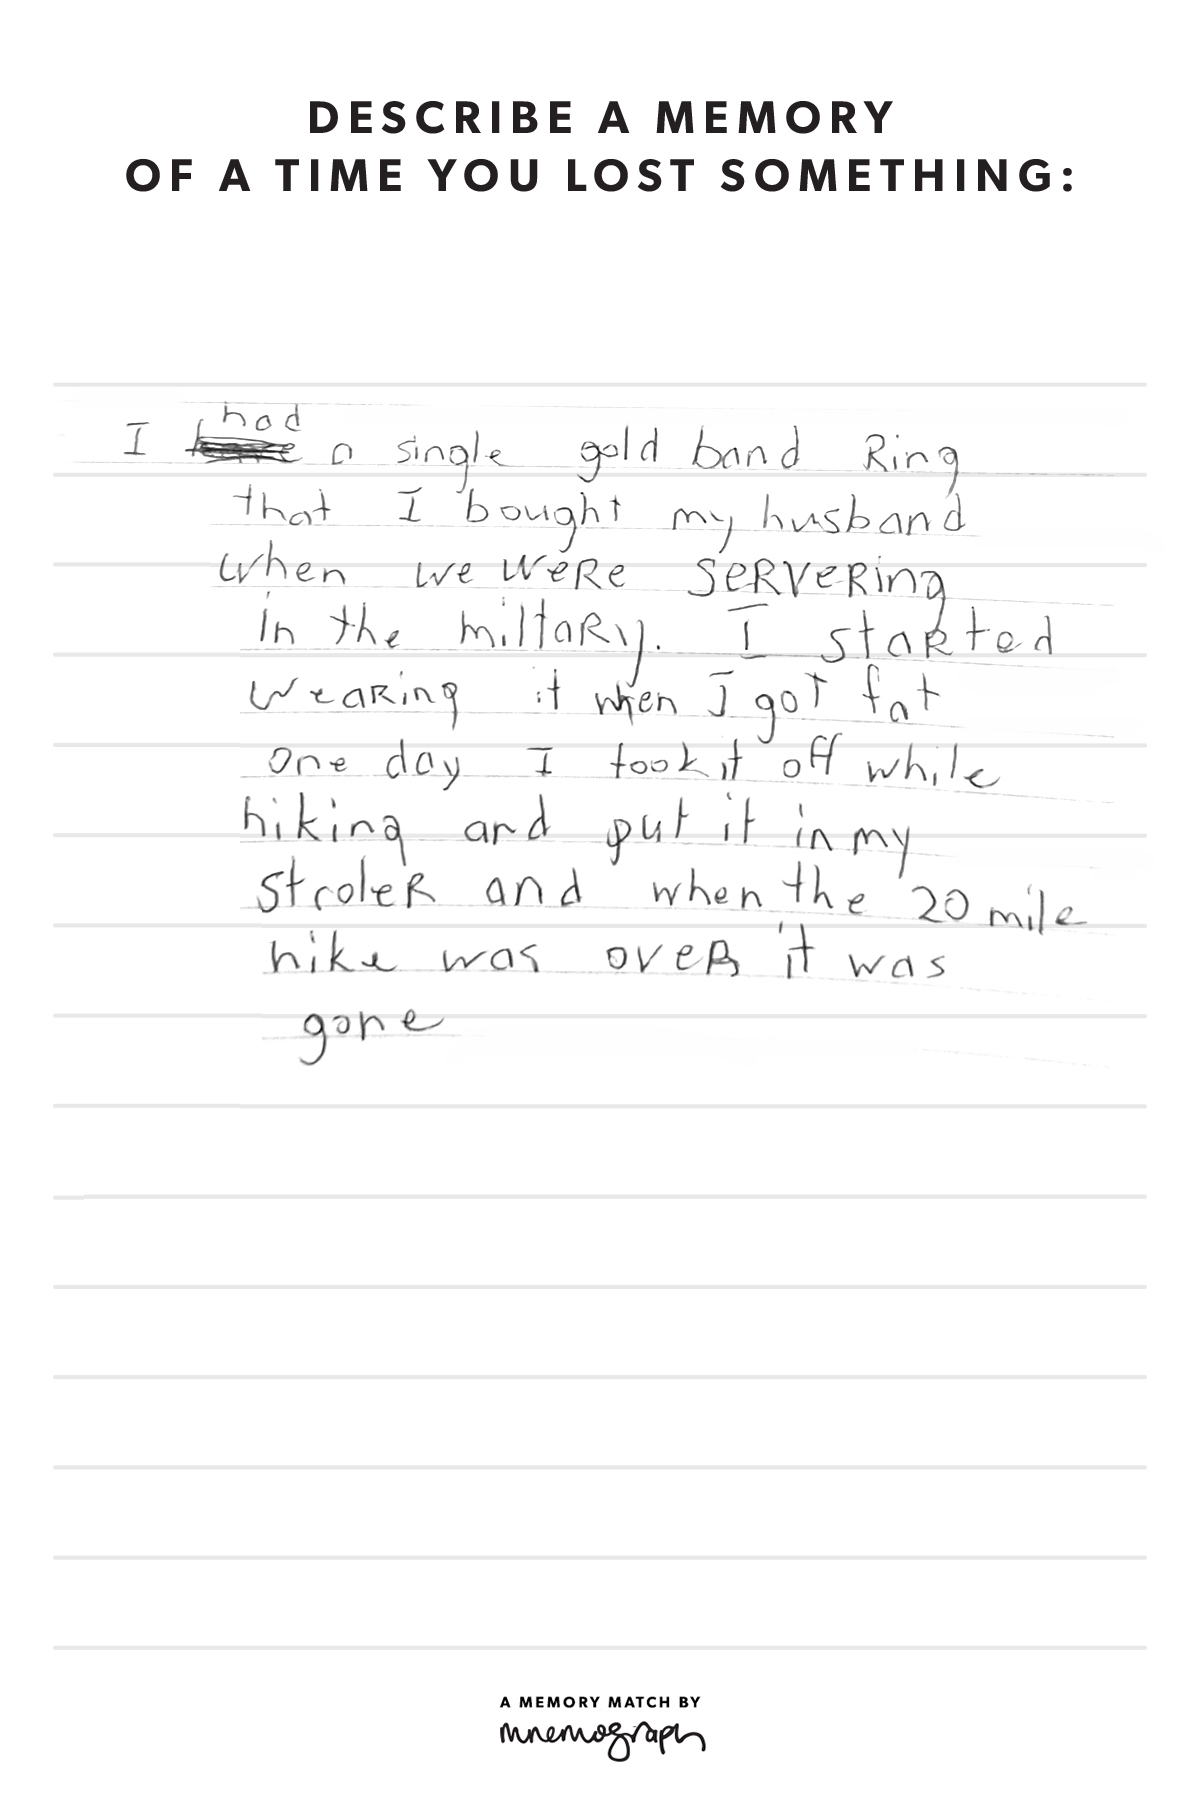 DESCRIBE A MEMORY
OF A TIME YOU LOST SOMETHING:
had
I a single gold band Ring
that I bought my husband
when we weRe seRveRing
in the miltaRy. I staRted
weaRing it when I got fat
one day I took it off while
hiking and put it in my
stroleR and when the 20 mile
hike was oveR it was
gone
A MEMORY MATCH BY
mnemograph